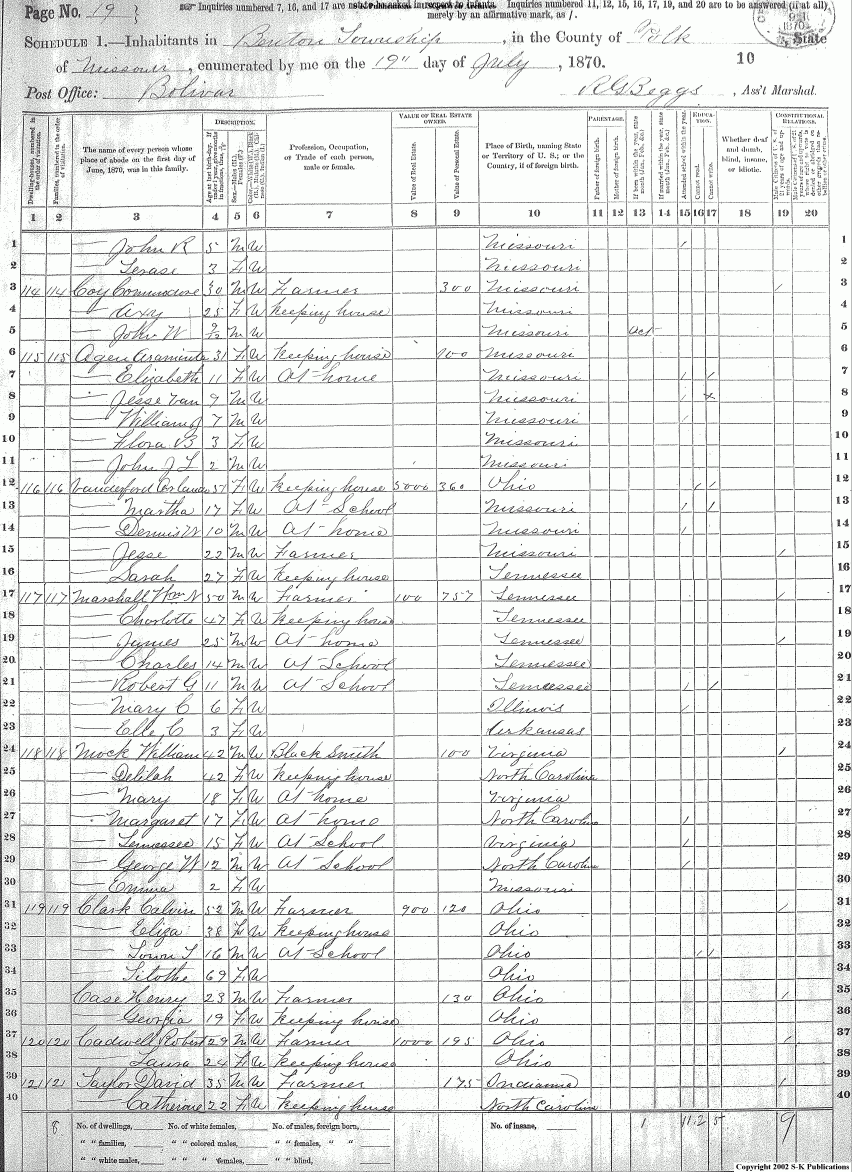 Page No. 19
Inquiries numbered 7, 16, and 17 are not to be asked in respect to infants. Inquiries numbered 11, 12, 15, 16, 17, 19, and 20 are to be answered (if at all)
merely by an affirmative mark, as /.
SCHEDULE 1.—Inhabitants in Benton Township, in the County of Polk, State
of Missouri, enumerated by me on the 19" day of July, 1870. 10
Post Office: Bolivar R G Beggs, Ass't Marshal.
DESCRIPTION. VALUE OF REAL ESTATE OWNED. PARENTAGE. EDUCATION. CONSTITUTIONAL RELATIONS.
Dwelling-houses, numbered in the order of visitation.
Families, numbered in the order of visitation.
The name of every person whose place of abode on the first day of June, 1870, was in this family.
Profession, Occupation, or Trade of each person, male or female.
Value of Real Estate.
Value of Personal Estate.
Place of Birth, naming State or Territory of U. S.; or the Country, if of foreign birth.
Father of foreign birth.
Mother of foreign birth.
Attended school within the year.
Cannot read.
Cannot write.
Whether deaf and dumb, blind, insane, or idiotic.
1 2 3 4 5 6 7 8 9 10 11 12 13 14 15 16 17 18 19 20
1 — John R 5 M W Missouri / 1
2 — 3 F W Missouri 2
3 114 114 Coy Commodore 30 M W Farmer 300 Missouri / 3
4 — Axy 25 F W Keeping house Missouri 4
5 — John W 9/12 M W Missouri Oct 5
6 115 115 Agen Araminta 31 F W Keeping house 100 Missouri 6
7 — Elizabeth 11 F W At home Missouri / / 7
8 — Jesse Van 9 M W Missouri 8
9 — William J 7 M W Missouri / 9
10 — Flora B 3 F W Missouri 10
11 — John J L 2 M W Missouri 11
12 116 116 Vanderford 51 F W Keeping house 5000 360 Ohio / / 12
13 — Martha 17 F W At School Missouri / / 13
14 — Dennis W 10 M W At home Missouri / 14
15 — Jesse 22 M W Farmer Missouri / 15
16 — Sarah 27 F W Keeping house Tennessee 16
17 117 117 Marshall Wm N 50 M W Farmer 100 757 Tennessee / 17
18 — Charlotte 47 F W Keeping house Tennessee 18
19 — James 25 M W At home Tennessee / 19
20 — Charles 14 M W At School Tennessee 20
21 — Robert G 11 M W At School Tennessee / / 21
22 — Mary C 6 F W Illinois / 22
23 — Elle C 3 F W Arkansas 23
24 118 118 Mock William 42 M W Black Smith 100 Virginia / 24
25 — Delilah 42 F W Keeping house North Carolina 25
26 — Mary 18 F W At home Virginia 26
27 — Margaret 17 F W At home North Carolina / 27
28 — Tennessee 15 F W At School Virginia / 28
29 — George W 12 M W At School North Carolina / 29
30 — Emma 2 F W Missouri 30
31 119 119 Clark Calvin 52 M W Farmer 900 120 Ohio / 31
32 — Eliza 38 F W Keeping house Ohio 32
33 — 16 M W At School Ohio / / 33
34 — 69 F W Ohio 34
35 Case Henry 23 M W Farmer 130 Ohio / 35
36 — Georgia 19 F W Keeping house Ohio 36
37 120 120 Cadwell Robert 29 M W Farmer 1000 195 Ohio / 37
38 — Laura 24 F W Keeping house Ohio 38
39 121 121 Taylor David 35 M W Farmer 175 Indianna / 39
40 — Catherine 22 F W Keeping house North Carolina 40
8 No. of dwellings, No. of white females, No. of males, foreign born, No. of insane, 1 11 2 5 9
" " families, " " colored males, " " females, " "
" " white males, " " " females, " " blind,
Copyright 2002 S-K Publications